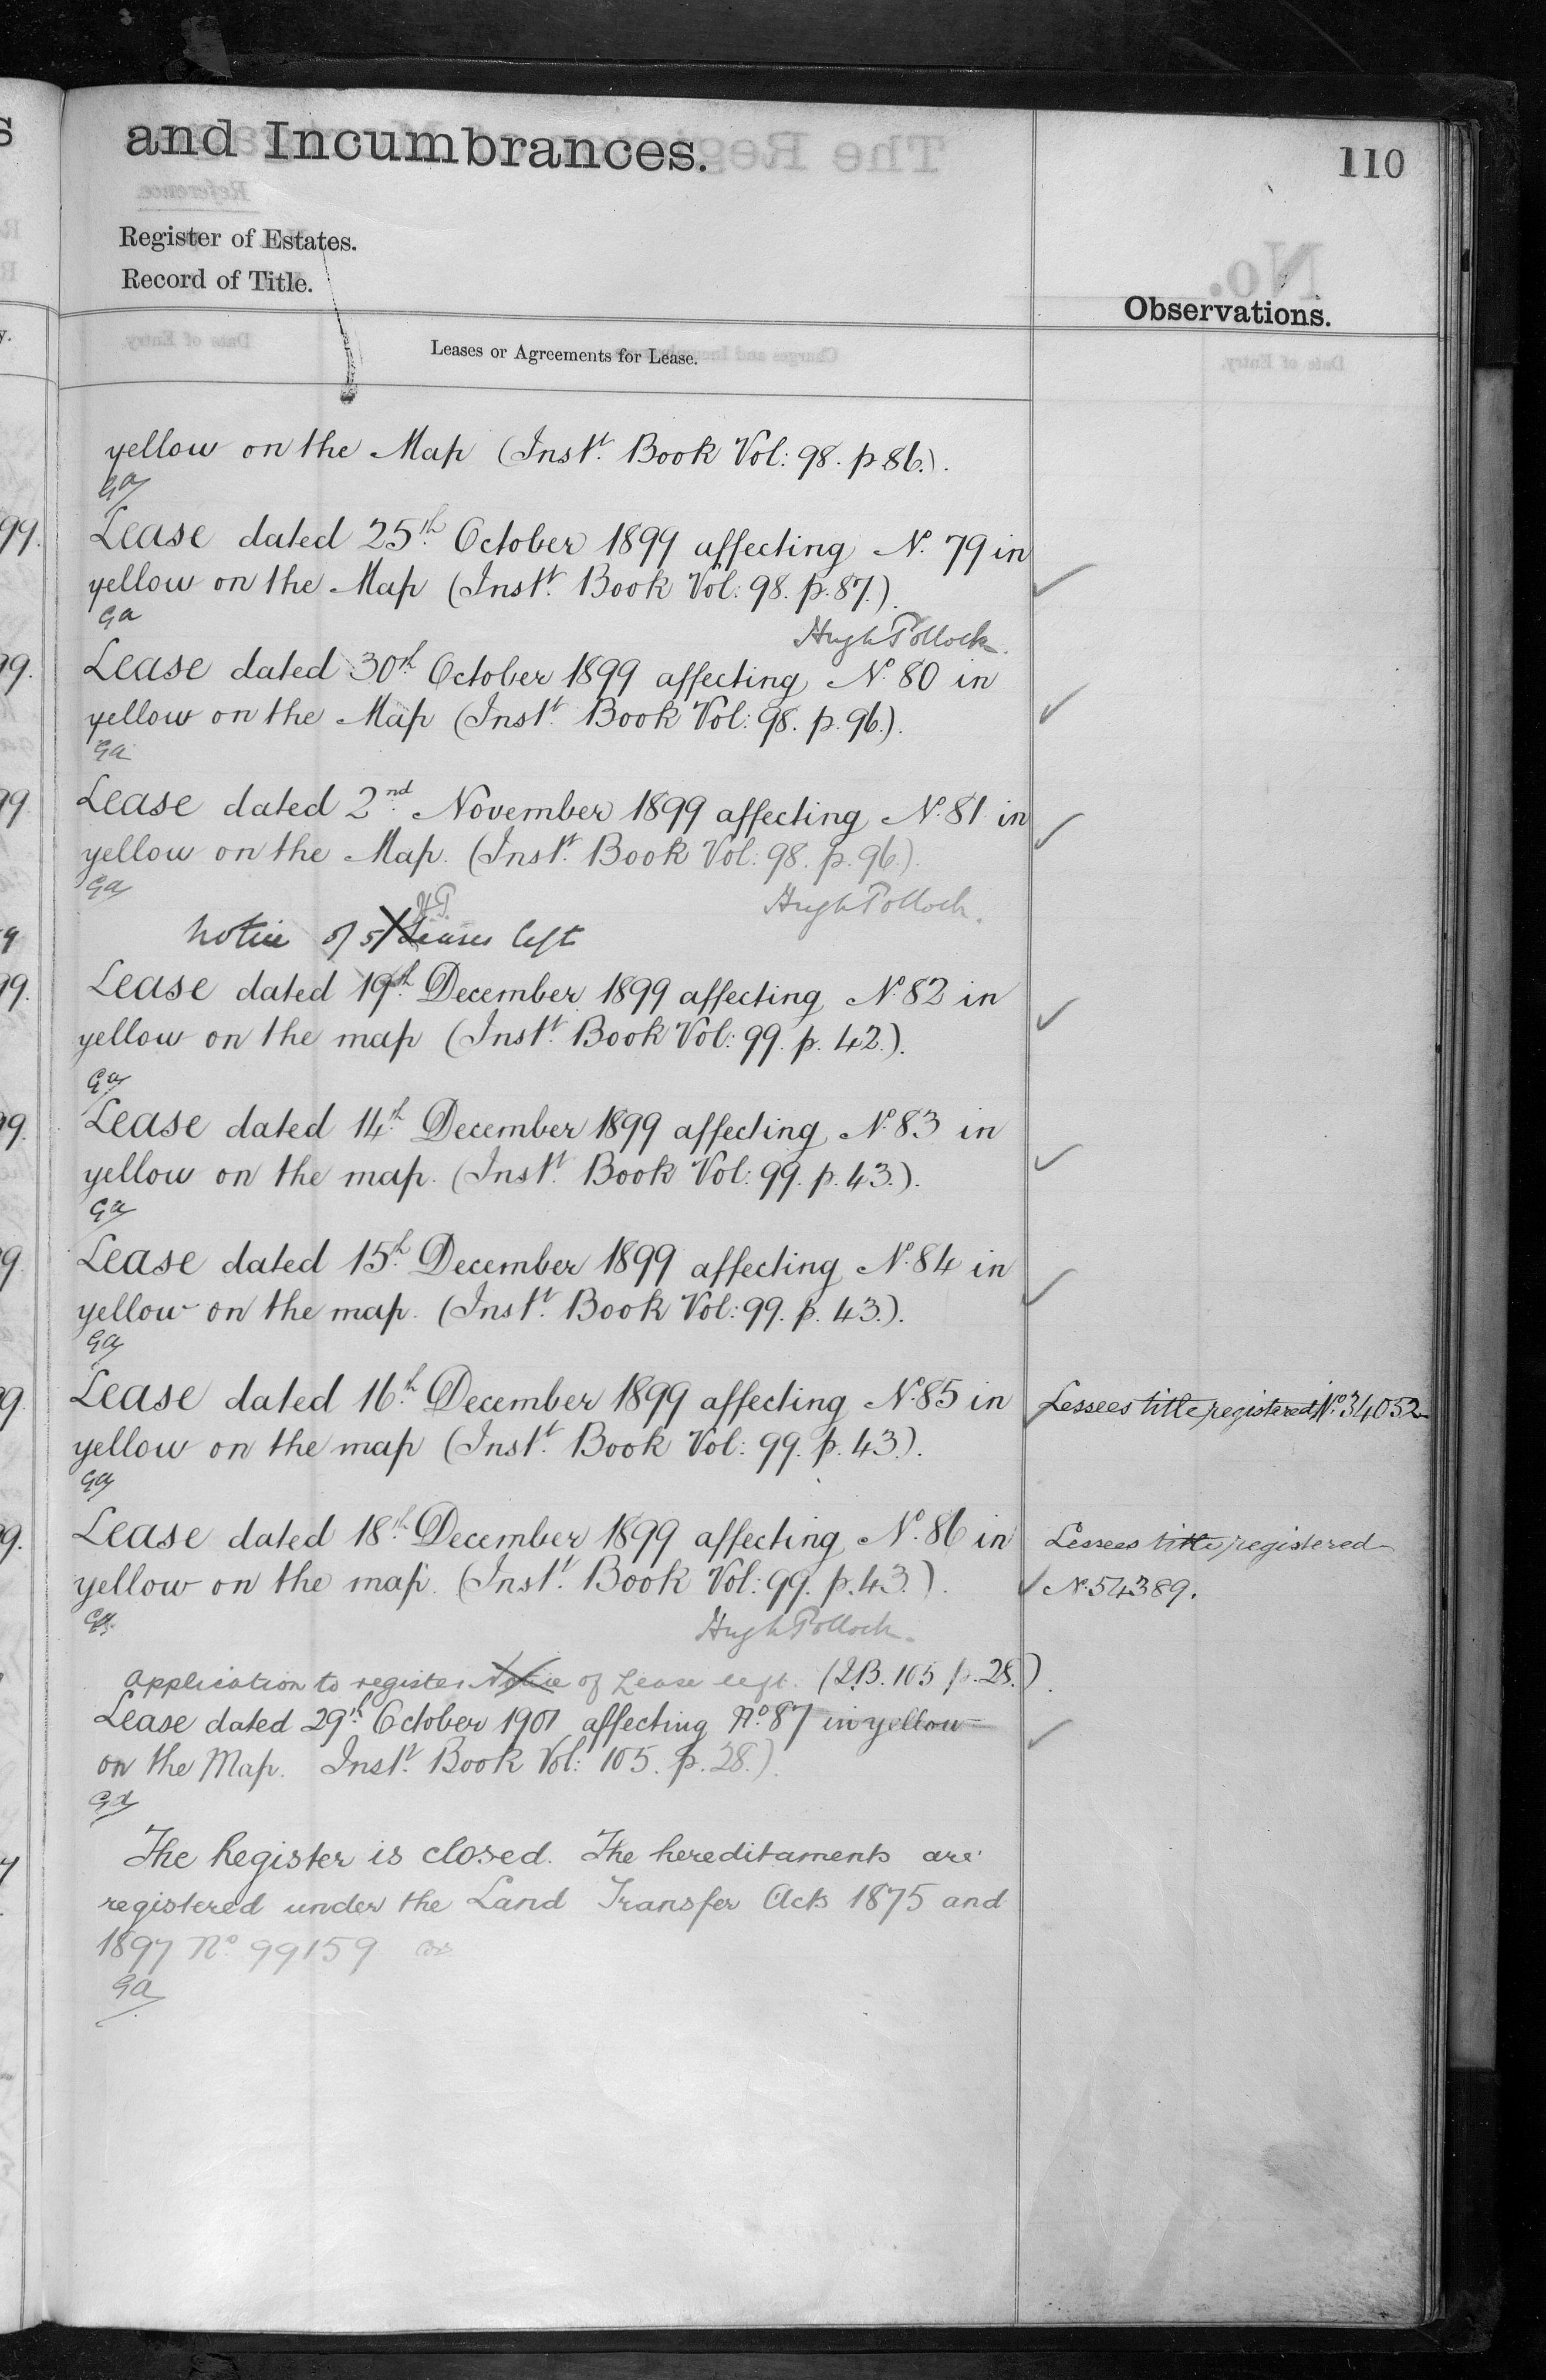 and Incumbrances.
110
Register of Estates.
Record of Title.
Observations.
Leases or Agreements for Lease.
yellow on the Map (Instt. Book Vol: 98. p 86.).
Ga
Lease dated 25th October 1899 affecting No. 79 in
yellow on the Map (Instt. Book Vol: 98. p. 87.).
Ga
Hugh Pollock.
Lease dated 30th October 1899 affecting No. 80 in
yellow on the Map (Instt. Book Vol: 98. p. 96.).
Ga
Lease dated 2nd November 1899 affecting No. 81 in
yellow on the Map. (Instt. Book Vol: 98. p. 96.).
Ga
Hugh Pollock.
HP
Notice of 5 Leases left
Lease dated 19th December 1899 affecting No. 82 in
yellow on the map (Instt. Book Vol: 99. p. 42.).
Ga
Lease dated 14th December 1899 affecting No. 83 in
yellow on the map. (Instt. Book Vol: 99. p. 43.).
Ga
Lease dated 15th December 1899 affecting No. 84 in
yellow on the map. (Instt. Book Vol: 99. p. 43.).
Ga
Lease dated 16th December 1899 affecting No. 85 in
Lessees title registered No. 34052
yellow on the map (Instt. Book Vol: 99. p. 43.).
Ga
Lease dated 18th December 1899 affecting No. 86 in
Lessees title registered
yellow on the map. (Instt. Book Vol: 99. p. 43.).
No. 54389.
Ga
Hugh Pollock.
Application to register Notice of Lease left. (I.B. 105 p. 28.).
Lease dated 29th October 1901 affecting No. 87 in yellow
on the Map. Instt. Book Vol: 105. p. 28.).
Ga
The Register is closed. The hereditaments are
registered under the Land Transfer Acts 1875 and
1897 No. 99159
Ga